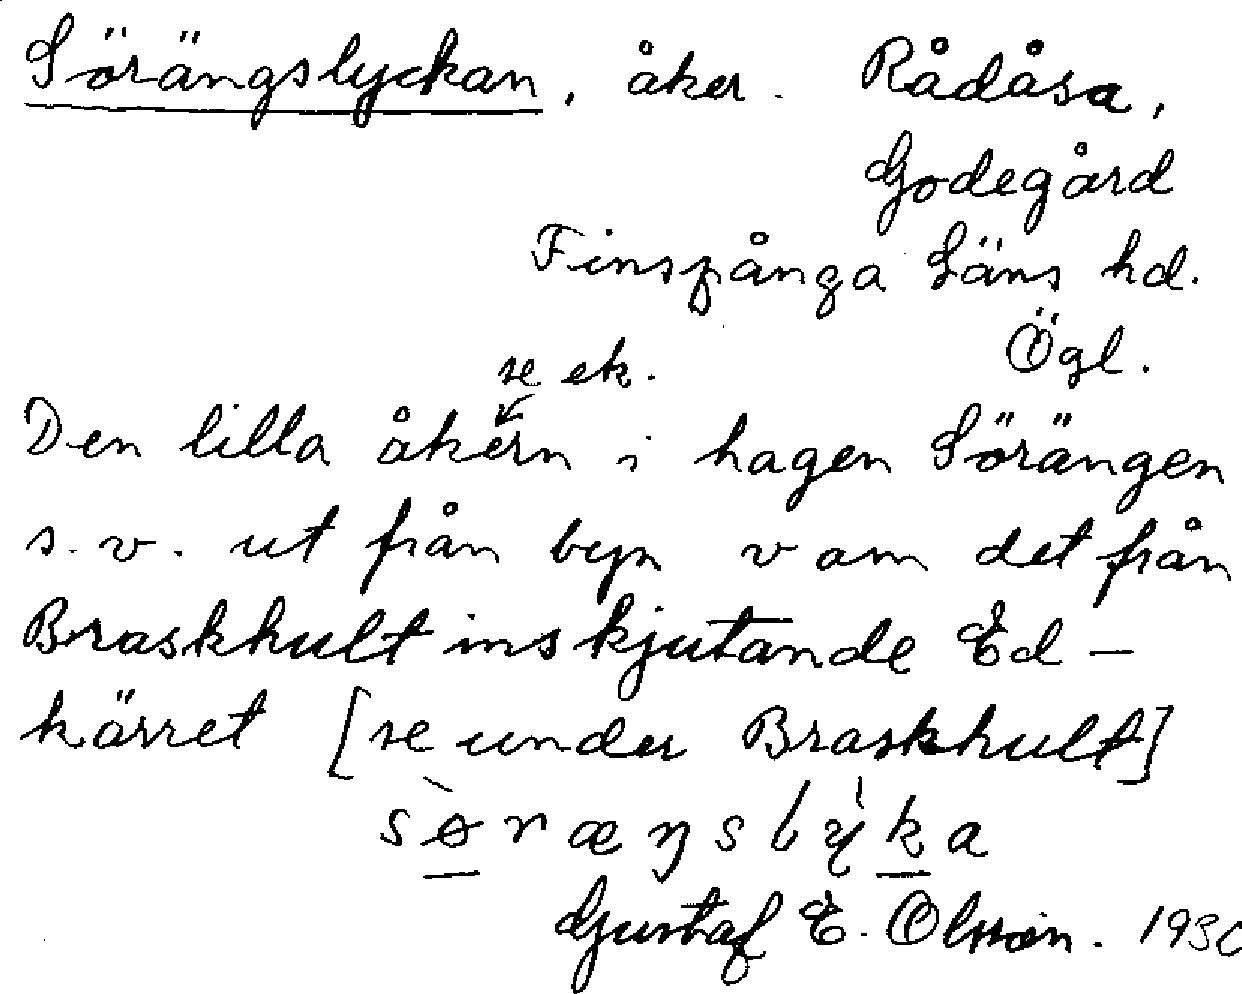 Sörängslyckan, åker. Rådåsa,
Godegård
Finspånga Läns hd.
Ögl.
se ek.
Den lilla åkern i hagen Sörängen
s.v. ut från byn v om det från
Braskhult inskjutande Ed-
kärret [se under Braskhult]
søræŋslyka
Gustaf E. Olsson. 1930